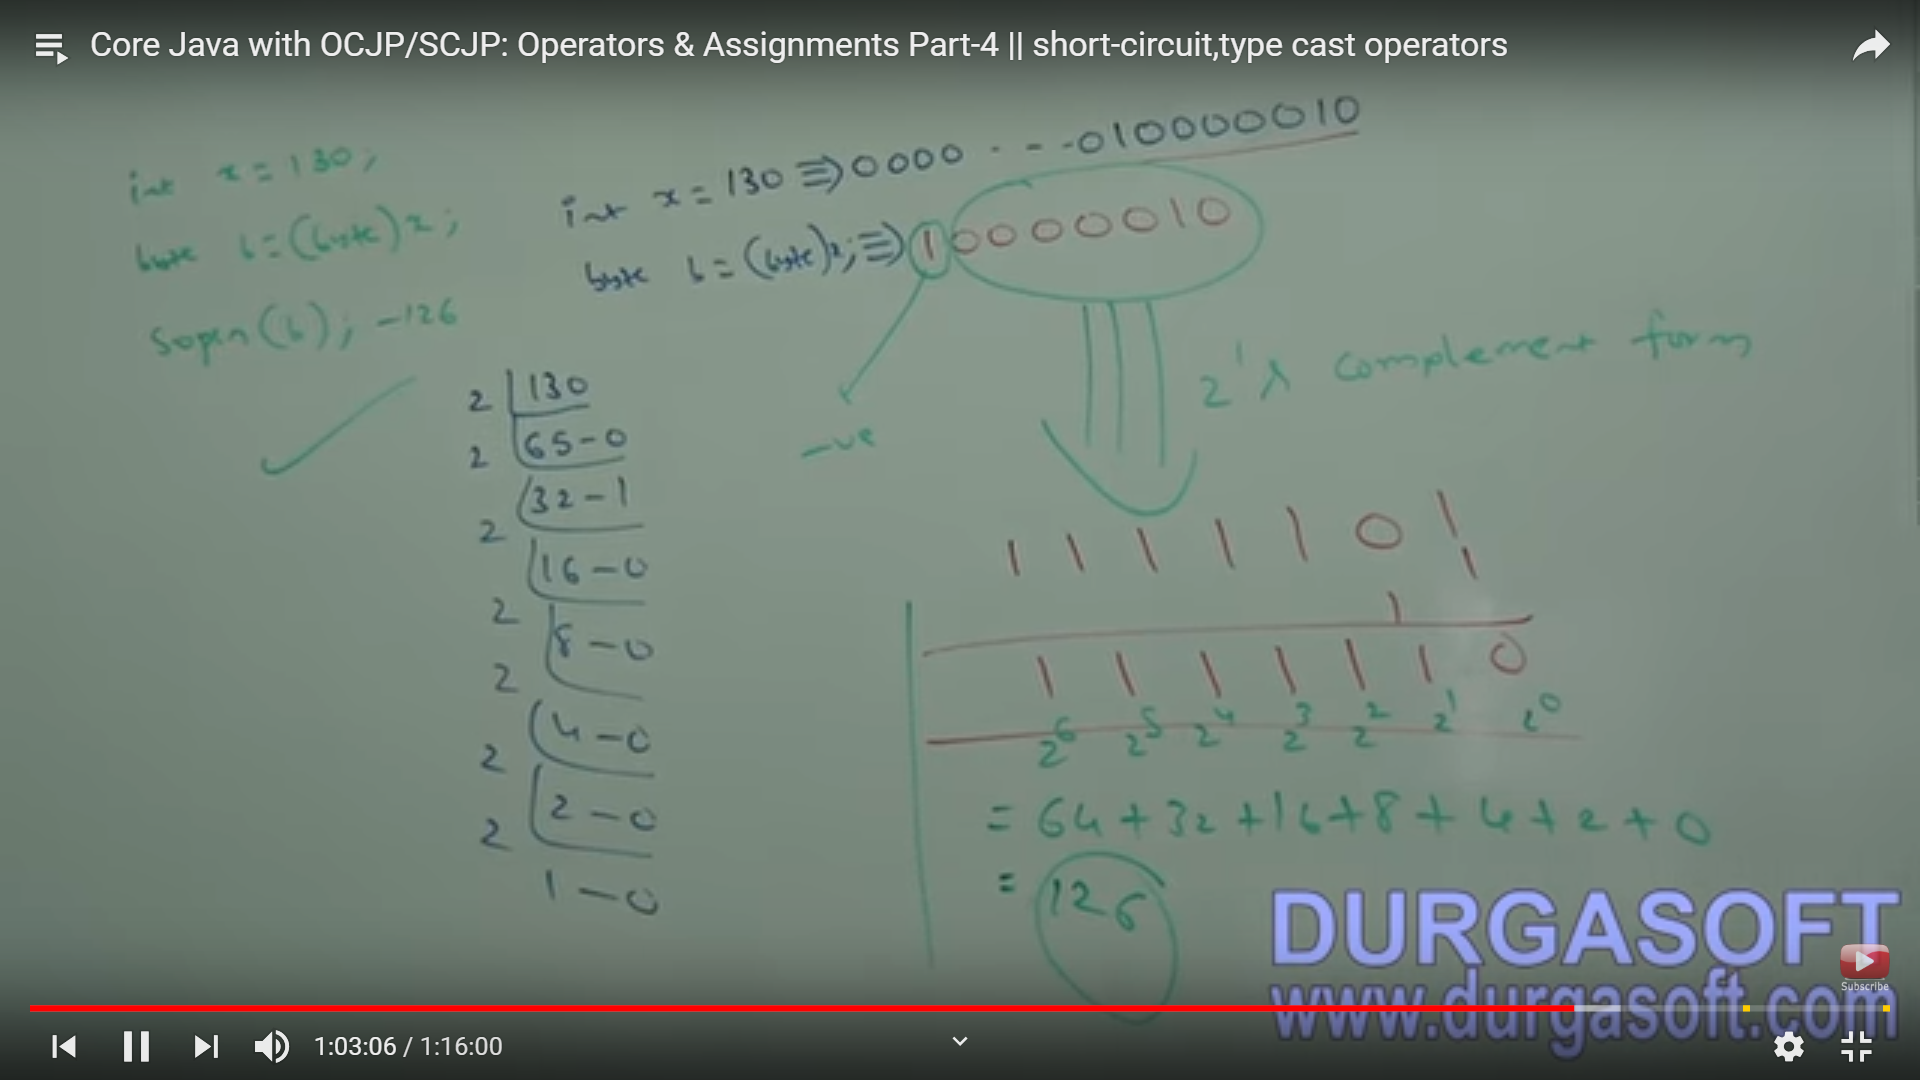 Core Java with OCJP/SCJP: Operators & Assignments Part-4 || short-circuit,type cast operators
int x = 130;
byte b = (byte)x;
Sopln(b); -126
int x = 130 ≡> 0000 . - - 010000010
byte b = (byte)x; ≡> 10000010
-ve
2's complement form
2 130
2 65-0
2 32-1
2 16-0
2 8-0
2 4-0
2 2-0
1-0
1 1 1 1 1 0 1
1
1
1 1 1 1 1 1 0
2^6 2^5 2^4 2^3 2^2 2^1 2^0
= 64+32+16+8+4+2+0
= 126
DURGASOFT
www.durgasoft.com
Subscribe
1:03:06 / 1:16:00